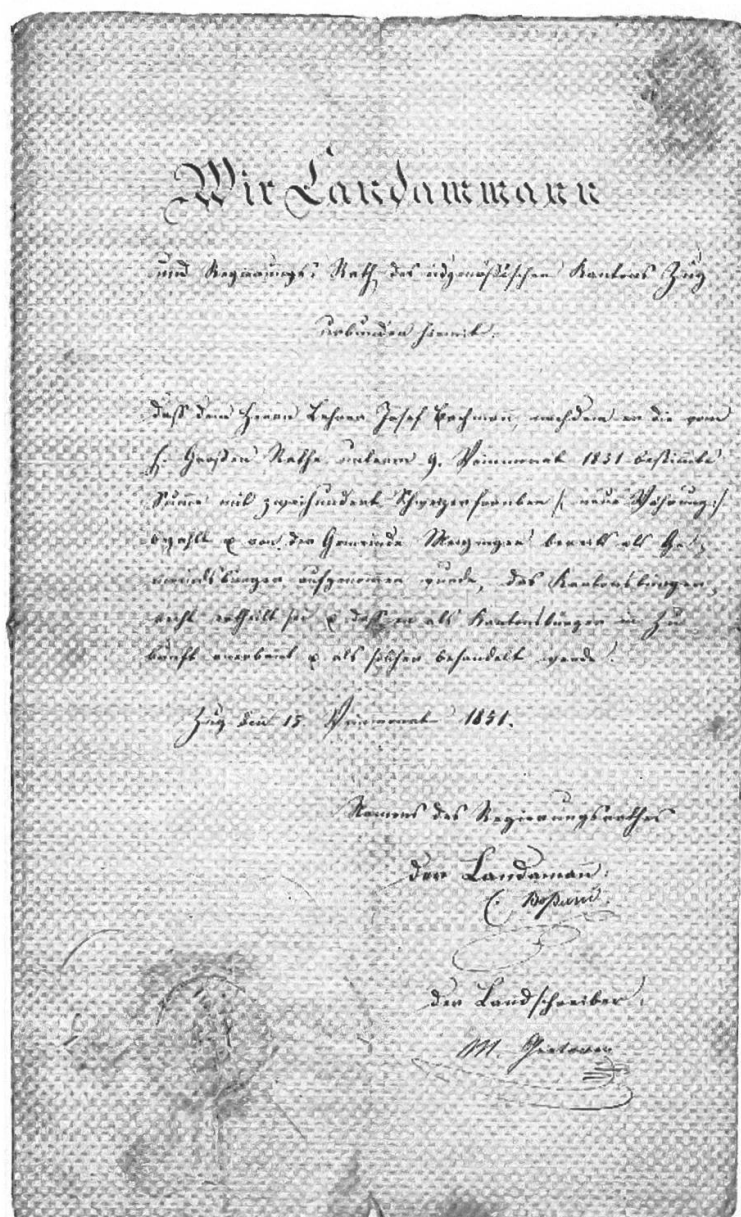 Wir Landammann
und Regierungs: Rath des eidgenößischen Kantons Zug
urkunden hiermit:
daß dem Herrn Lehrer Josef Bachmañ, nachdem er die vom
h. Großen Rathe unterm 9. Weinmonat 1851 bestimmte
Suṁe mit zweihundert Schweizerfranken /: neue Währung :/
bezahlt & von der Gemeinde Menzingen bereits als Ge-
meindsbürger aufgenoṁen wurde, das Kantonsbürger-
recht ertheilt sei & daß er als Kantonsbürger in Zu-
kunft anerkannt & als solcher behandelt werde.
Zug den 15. Weinmonat 1851.
Namens des Regierungsrathes
Der Landamañ:
C. Boßard.
Der Landschreiber:
M.